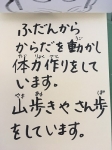 ふだんから
からだを動かし
体力作りをして
います。
山歩きやさん歩
をしています。